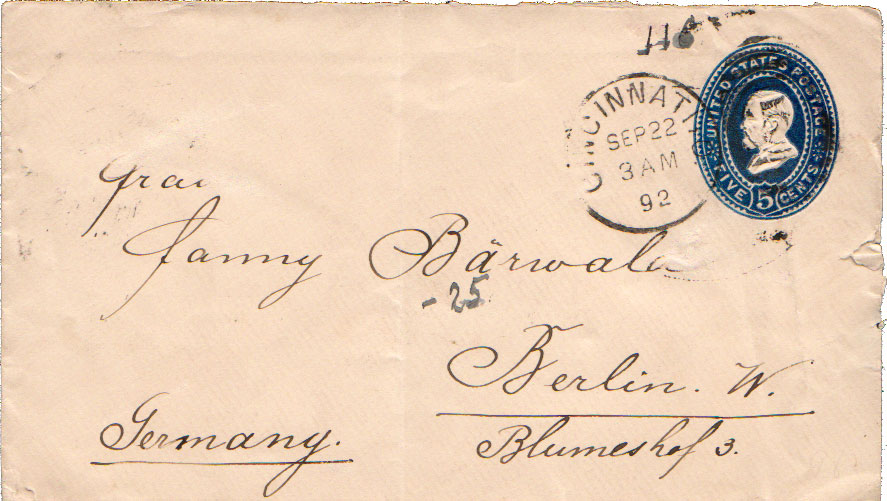 CINCINNATI
SEP 22
3 AM
92
UNITED STATES POSTAGE
FIVE 5 CENTS
Frau
Fanny Bärwald
- 25
Berlin. W.
Blumeshof 3.
Germany.